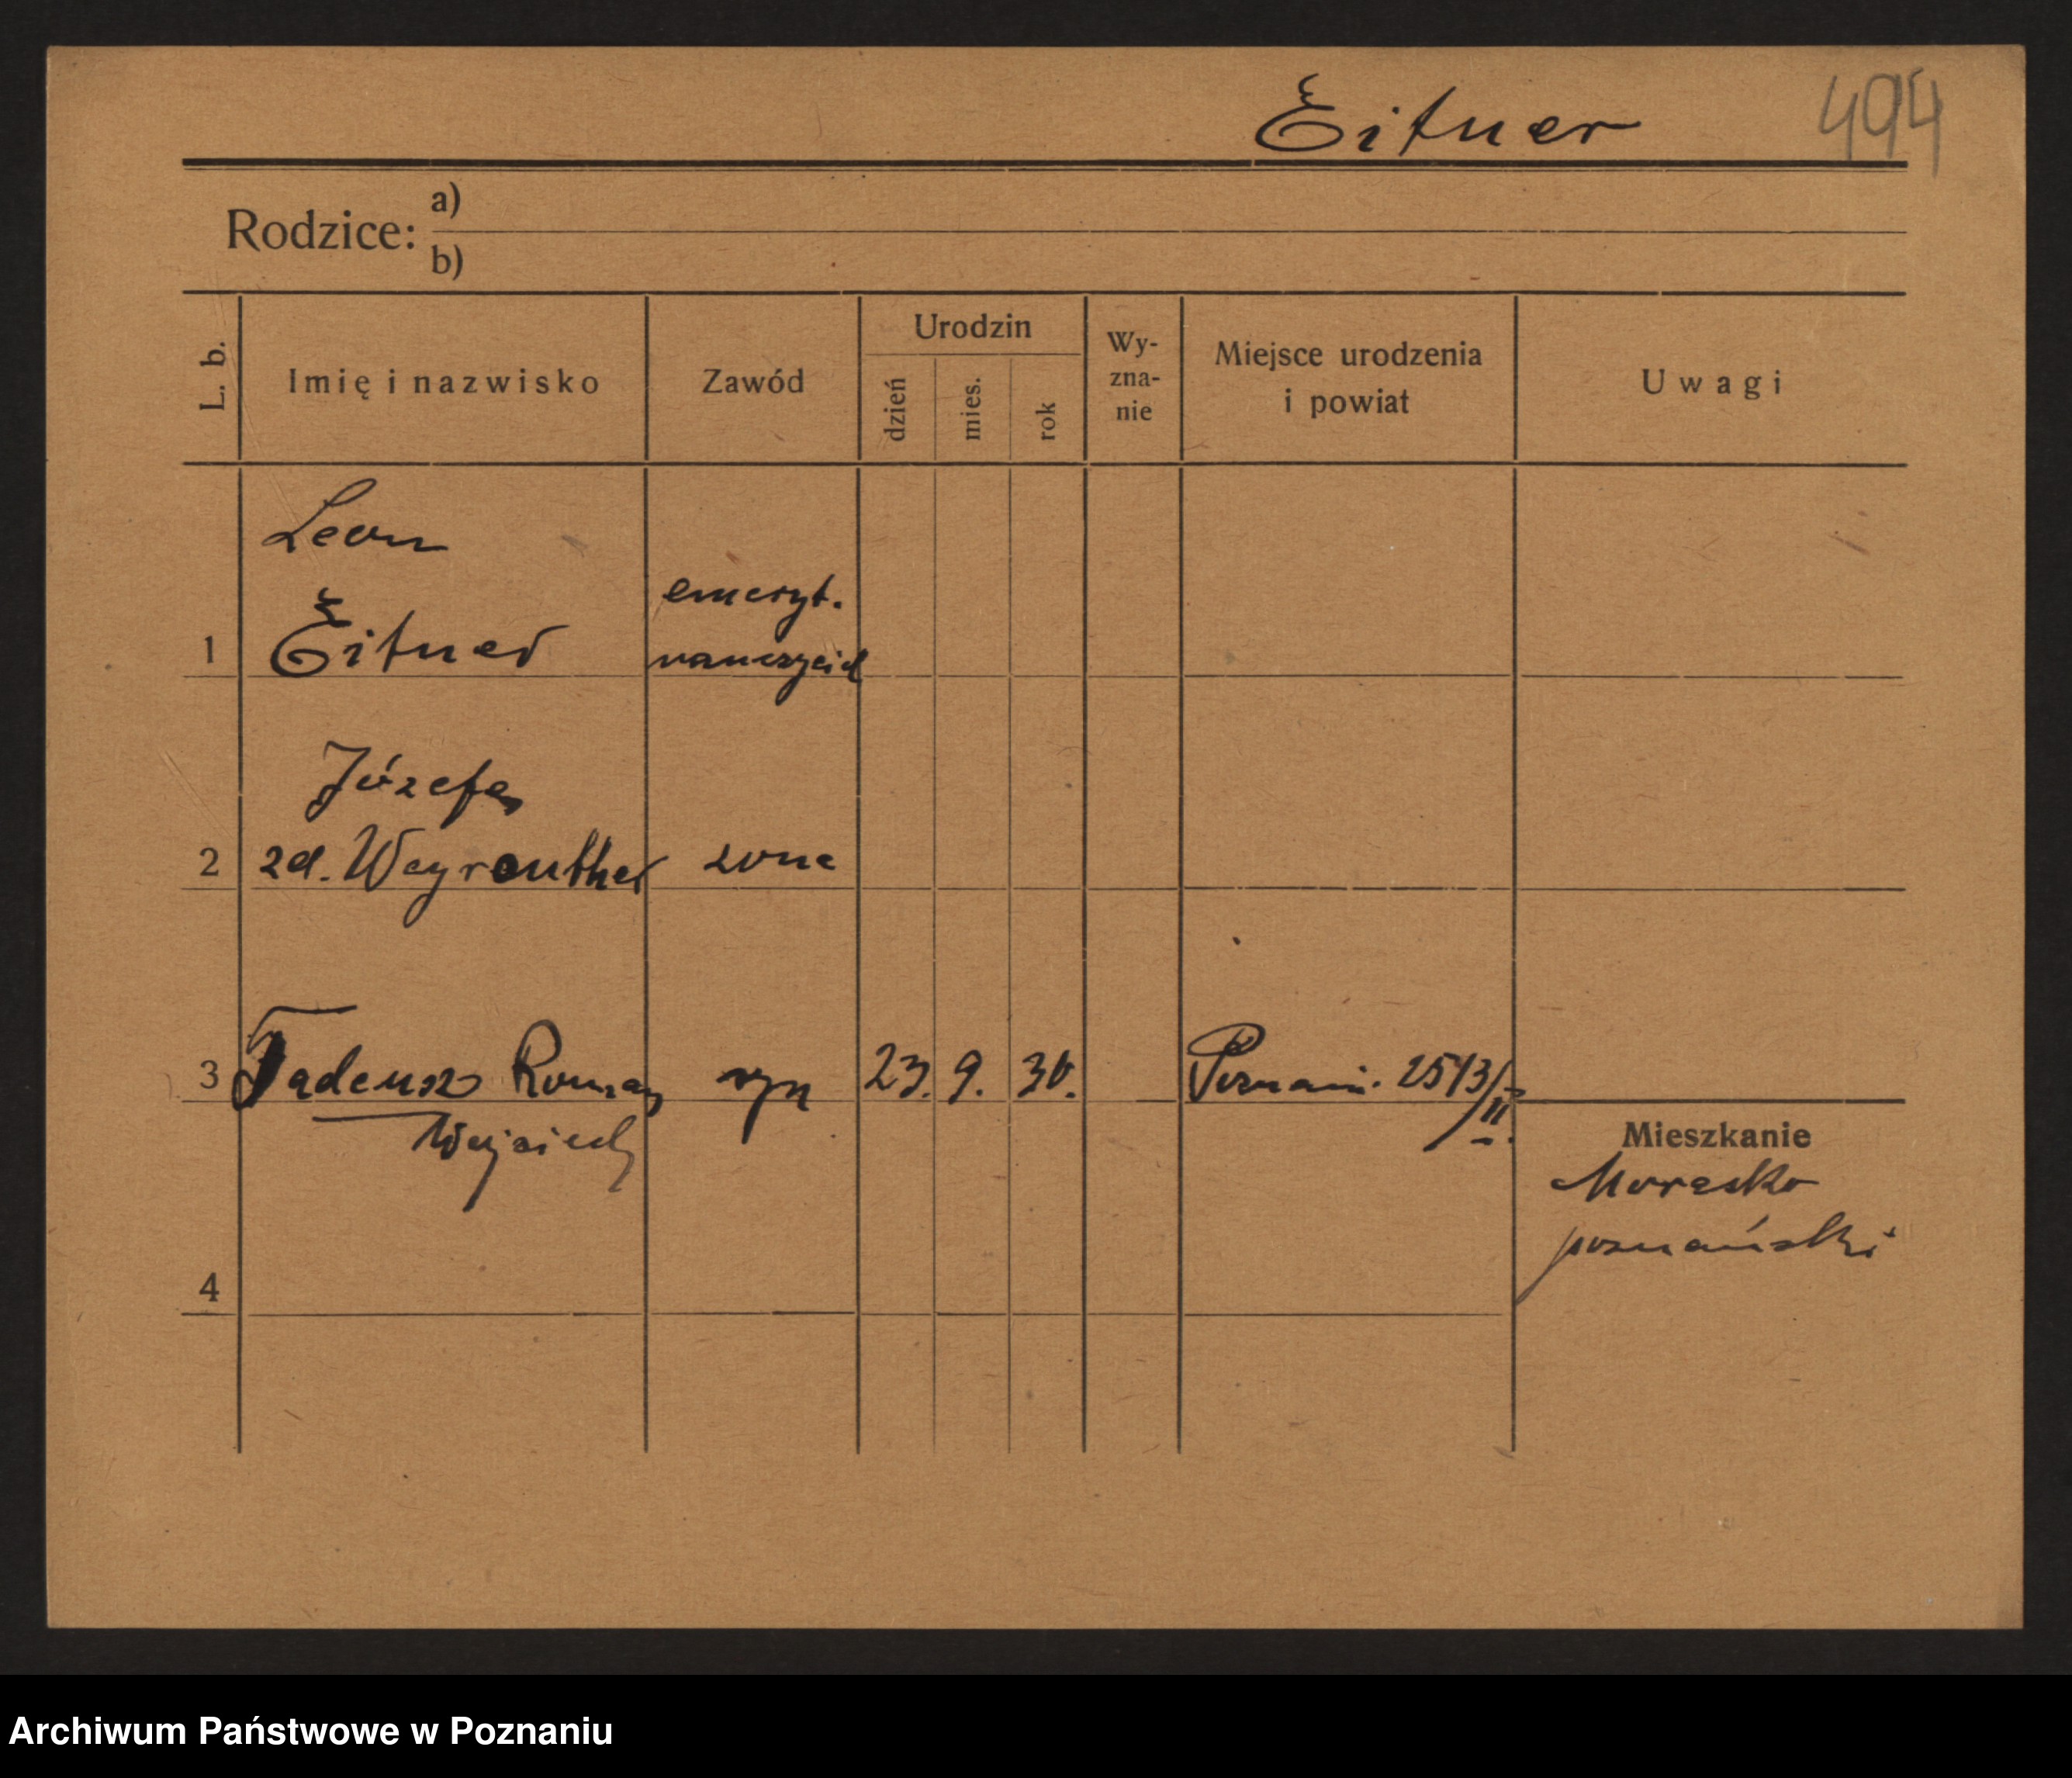 Eitner 494
Rodzice: a)
b)
L. b. Imię i nazwisko Zawód Urodzin dzień mies. rok Wy-zna-nie Miejsce urodzenia i powiat Uwagi
Leon
emeryt.
1 Eitner nauczyciel
Józefa
2 zd. Weyrauther żona
3 Tadeusz Roman syn 23. 9. 30. Poznań. 2513/II.
Wojciech
Mieszkanie
Morasko
poznański
4
Archiwum Państwowe w Poznaniu